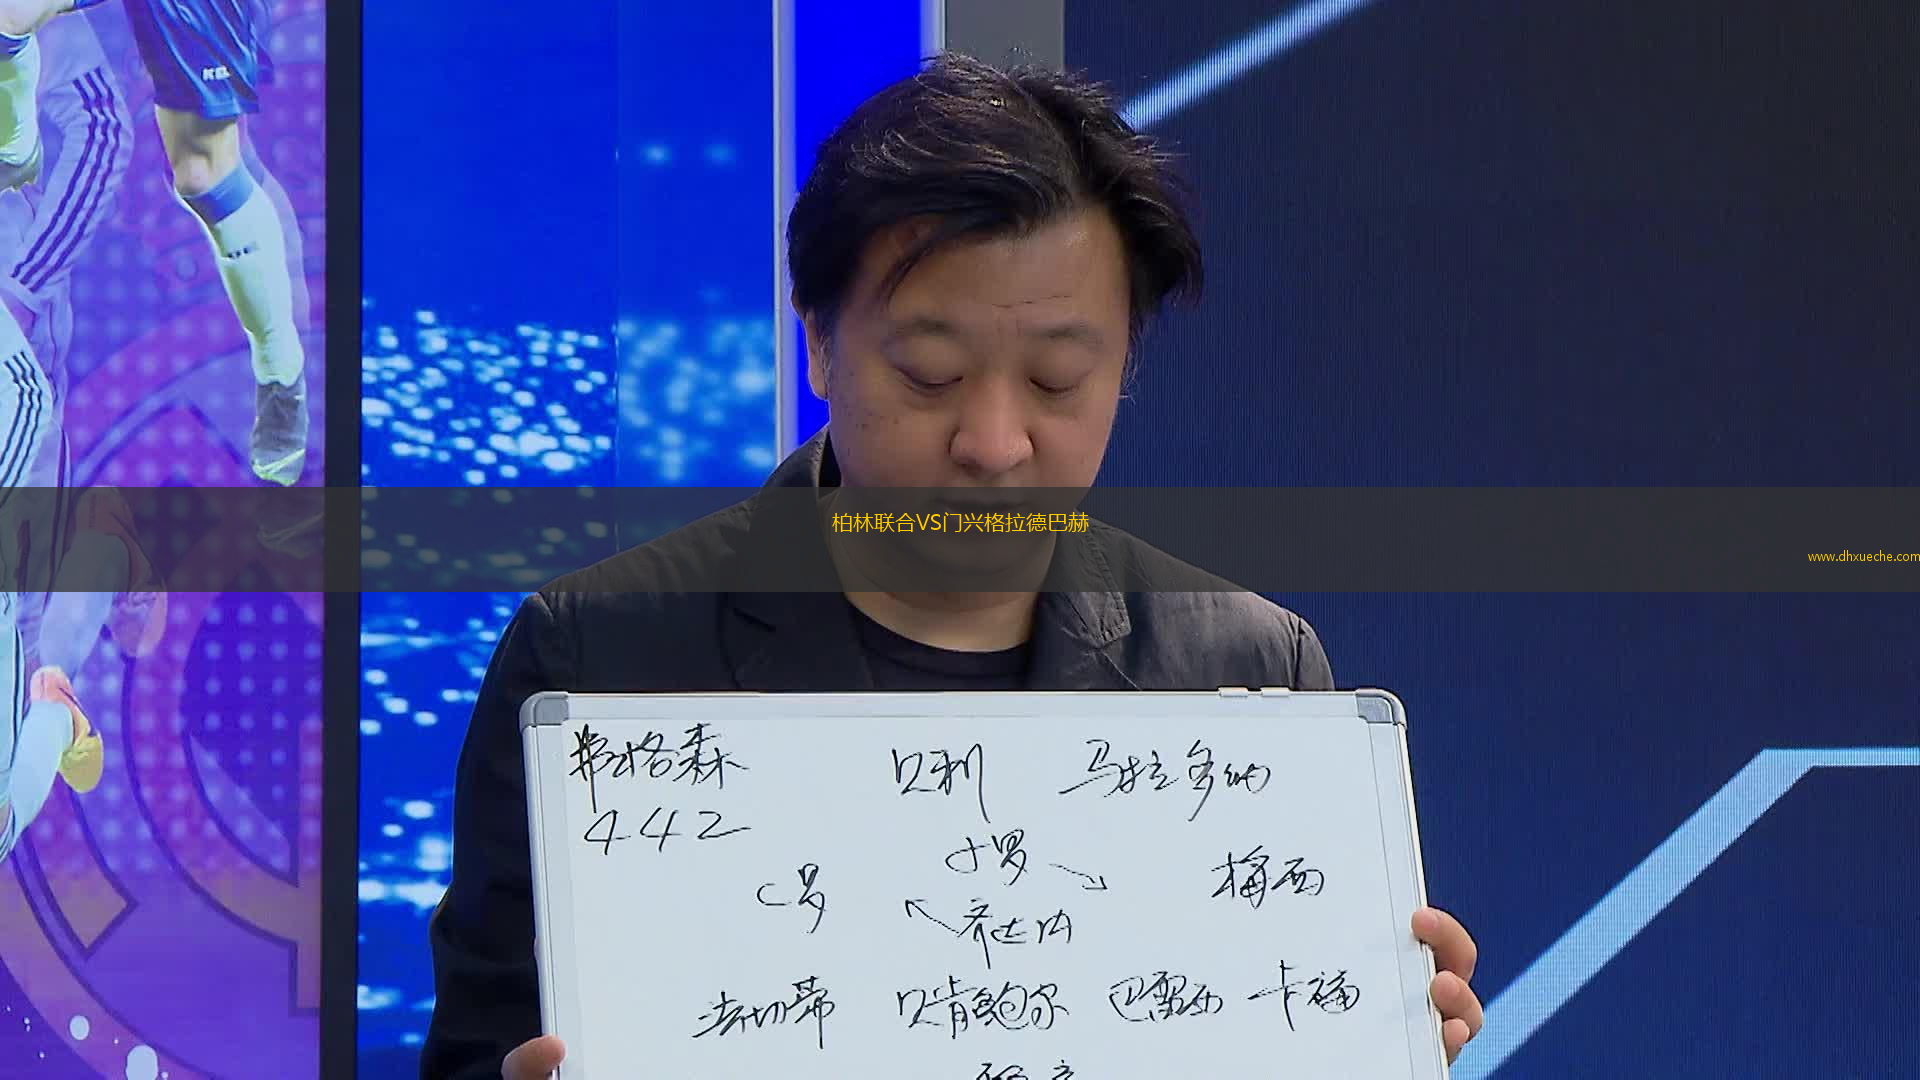 KEL
柏林联合VS门兴格拉德巴赫
www.dhxueche.com
弗格森 贝利 马拉多纳
442
小罗
C罗 梅西
齐达内
法切蒂 贝肯鲍尔 巴雷西 卡福